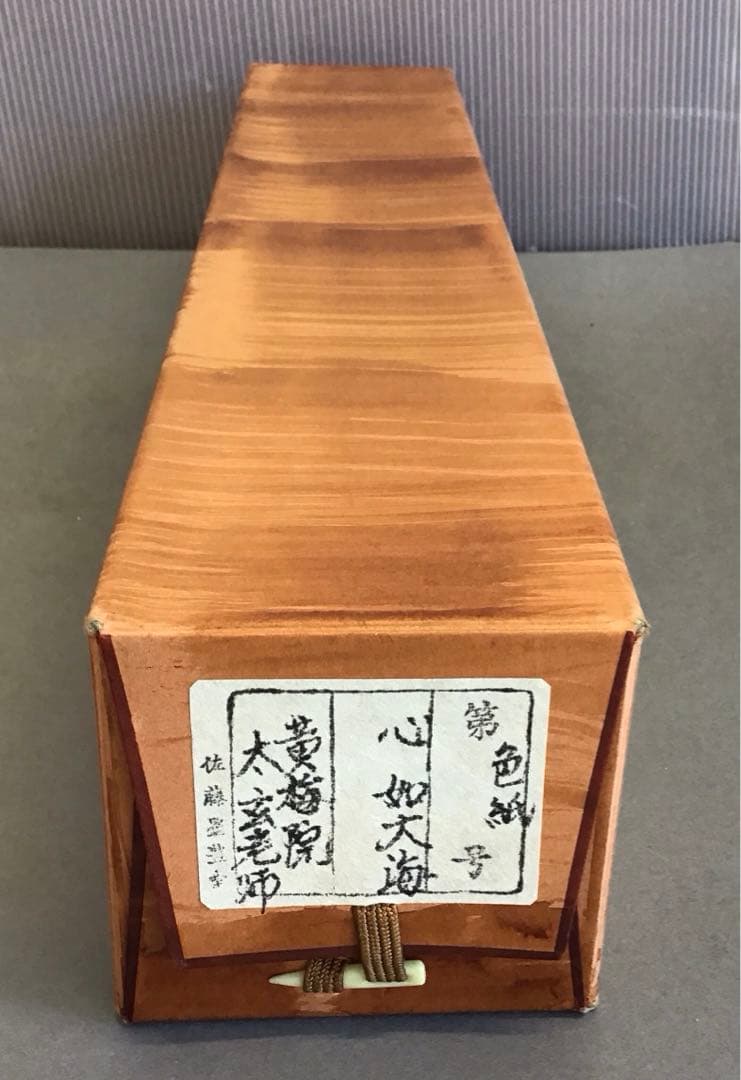 第 色紙 号
心如大海
黄梅院
太玄老師
佐藤